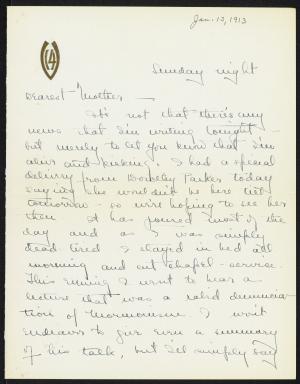 Jan. 12, 1913
Sunday night
Dearest Mother —
It's not that there's any
news that I'm writing tonight —
but merely to let you know that I'm
alive and kicking. I had a special
delivery from Parker today
saying she wouldn't be here till
tomorrow — so we're hoping to see her
then. It has poured most of the
day and as I was simply
dead-tired I stayed in bed all
morning and cut chapel-service.
This evening I went to hear a
lecture that was a rabid denuncia-
tion of Mormonism. I won't
endeavor to give even a summary
of his talk, but I'll simply say